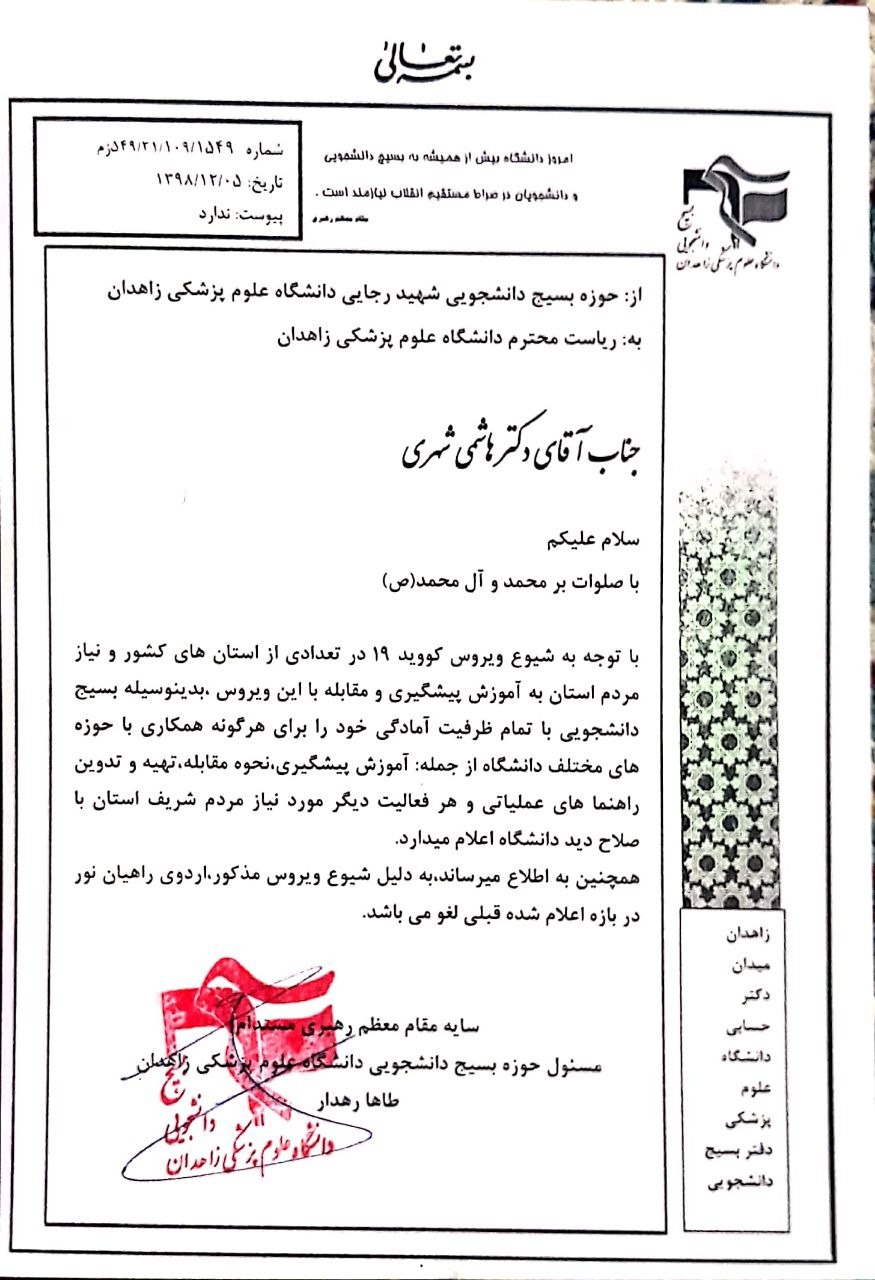 بسمه تعالی
شماره ۵۴۹/۲۱/۱۰۹/۱۵۴۹ذزم
تاریخ: ۱۳۹۸/۱۲/۰۵
پیوست: ندارد
امروز دانشگاه بیش از همیشه به بسیج دانشجویی
و دانشجویان در صراط مستقیم انقلاب نیازمند است .
مقام معظم رهبری
بسیج
دانشجویی
دانشگاه علوم پزشکی زاهدان
از: حوزه بسیج دانشجویی شهید رجایی دانشگاه علوم پزشکی زاهدان
به: ریاست محترم دانشگاه علوم پزشکی زاهدان
جناب آقای دکتر هاشمی شهری
سلام علیکم
با صلوات بر محمد و آل محمد(ص)
با توجه به شیوع ویروس کووید ۱۹ در تعدادی از استان های کشور و نیاز
مردم استان به آموزش پیشگیری و مقابله با این ویروس ،بدینوسیله بسیج
دانشجویی با تمام ظرفیت آمادگی خود را برای هرگونه همکاری با حوزه
های مختلف دانشگاه از جمله: آموزش پیشگیری،نحوه مقابله،تهیه و تدوین
راهنما های عملیاتی و هر فعالیت دیگر مورد نیاز مردم شریف استان با
صلاح دید دانشگاه اعلام میدارد.
همچنین به اطلاع میرساند،به دلیل شیوع ویروس مذکور،اردوی راهیان نور
در بازه اعلام شده قبلی لغو می باشد.
سایه مقام معظم رهبری مستدام
مسئول حوزه بسیج دانشجویی دانشگاه علوم پزشکی زاهدان
طاها رهدار
بسیج
دانشجویی
دانشگاه علوم پزشکی زاهدان
زاهدان
میدان
دکتر
حسابی
دانشگاه
علوم
پزشکی
دفتر بسیج
دانشجویی